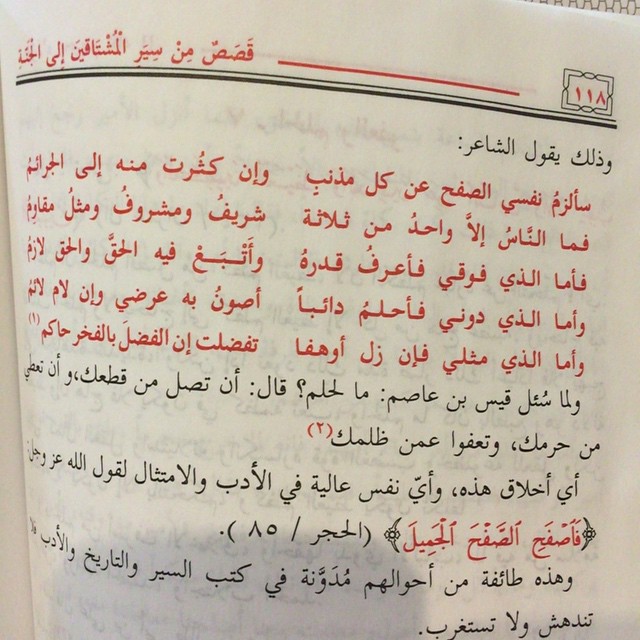 قَصَصٌ مِنْ سِيَرِ الْمُشْتَاقِينَ إِلَى الْجَنَّةِ
١١٨
وذلك يقول الشاعر:
سألزمُ نفسي الصفح عن كل مذنبٍ وإن كثُرت منه إلى الجرائمُ
فما النَّاسُ إلاَّ واحدُ من ثلاثة شريفُ ومشروفُ ومثلُ مقاومُ
فأما الذي فوقي فأعرفُ قدرهُ وأَتْبَعْ فيه الحقَّ والحق لازمُ
وأما الذي دوني فأحلمُ دائباً أصونُ به عرضي وإن لام لائمُ
وأما الذي مثلي فإن زل أوهفا تفضلت إن الفضلَ بالفخر حاكم(١)
ولما سُئل قيس بن عاصم: ما لحلم؟ قال: أن تصل من قطعك، و أن تعطي
من حرمك، وتعفوا عمن ظلمك(٢)
أي أخلاق هذه، وأيّ نفس عالية في الأدب والامتثال لقول الله عز وجل:
﴿فَٱصْفَحِ ٱلصَّفْحَ ٱلْجَمِيلَ﴾ (الحجر / ٨٥ ).
وهذه طائفة من أحوالهم مُدَوَّنة في كتب السير والتاريخ والأدب فلا
تندهش ولا تستغرب.